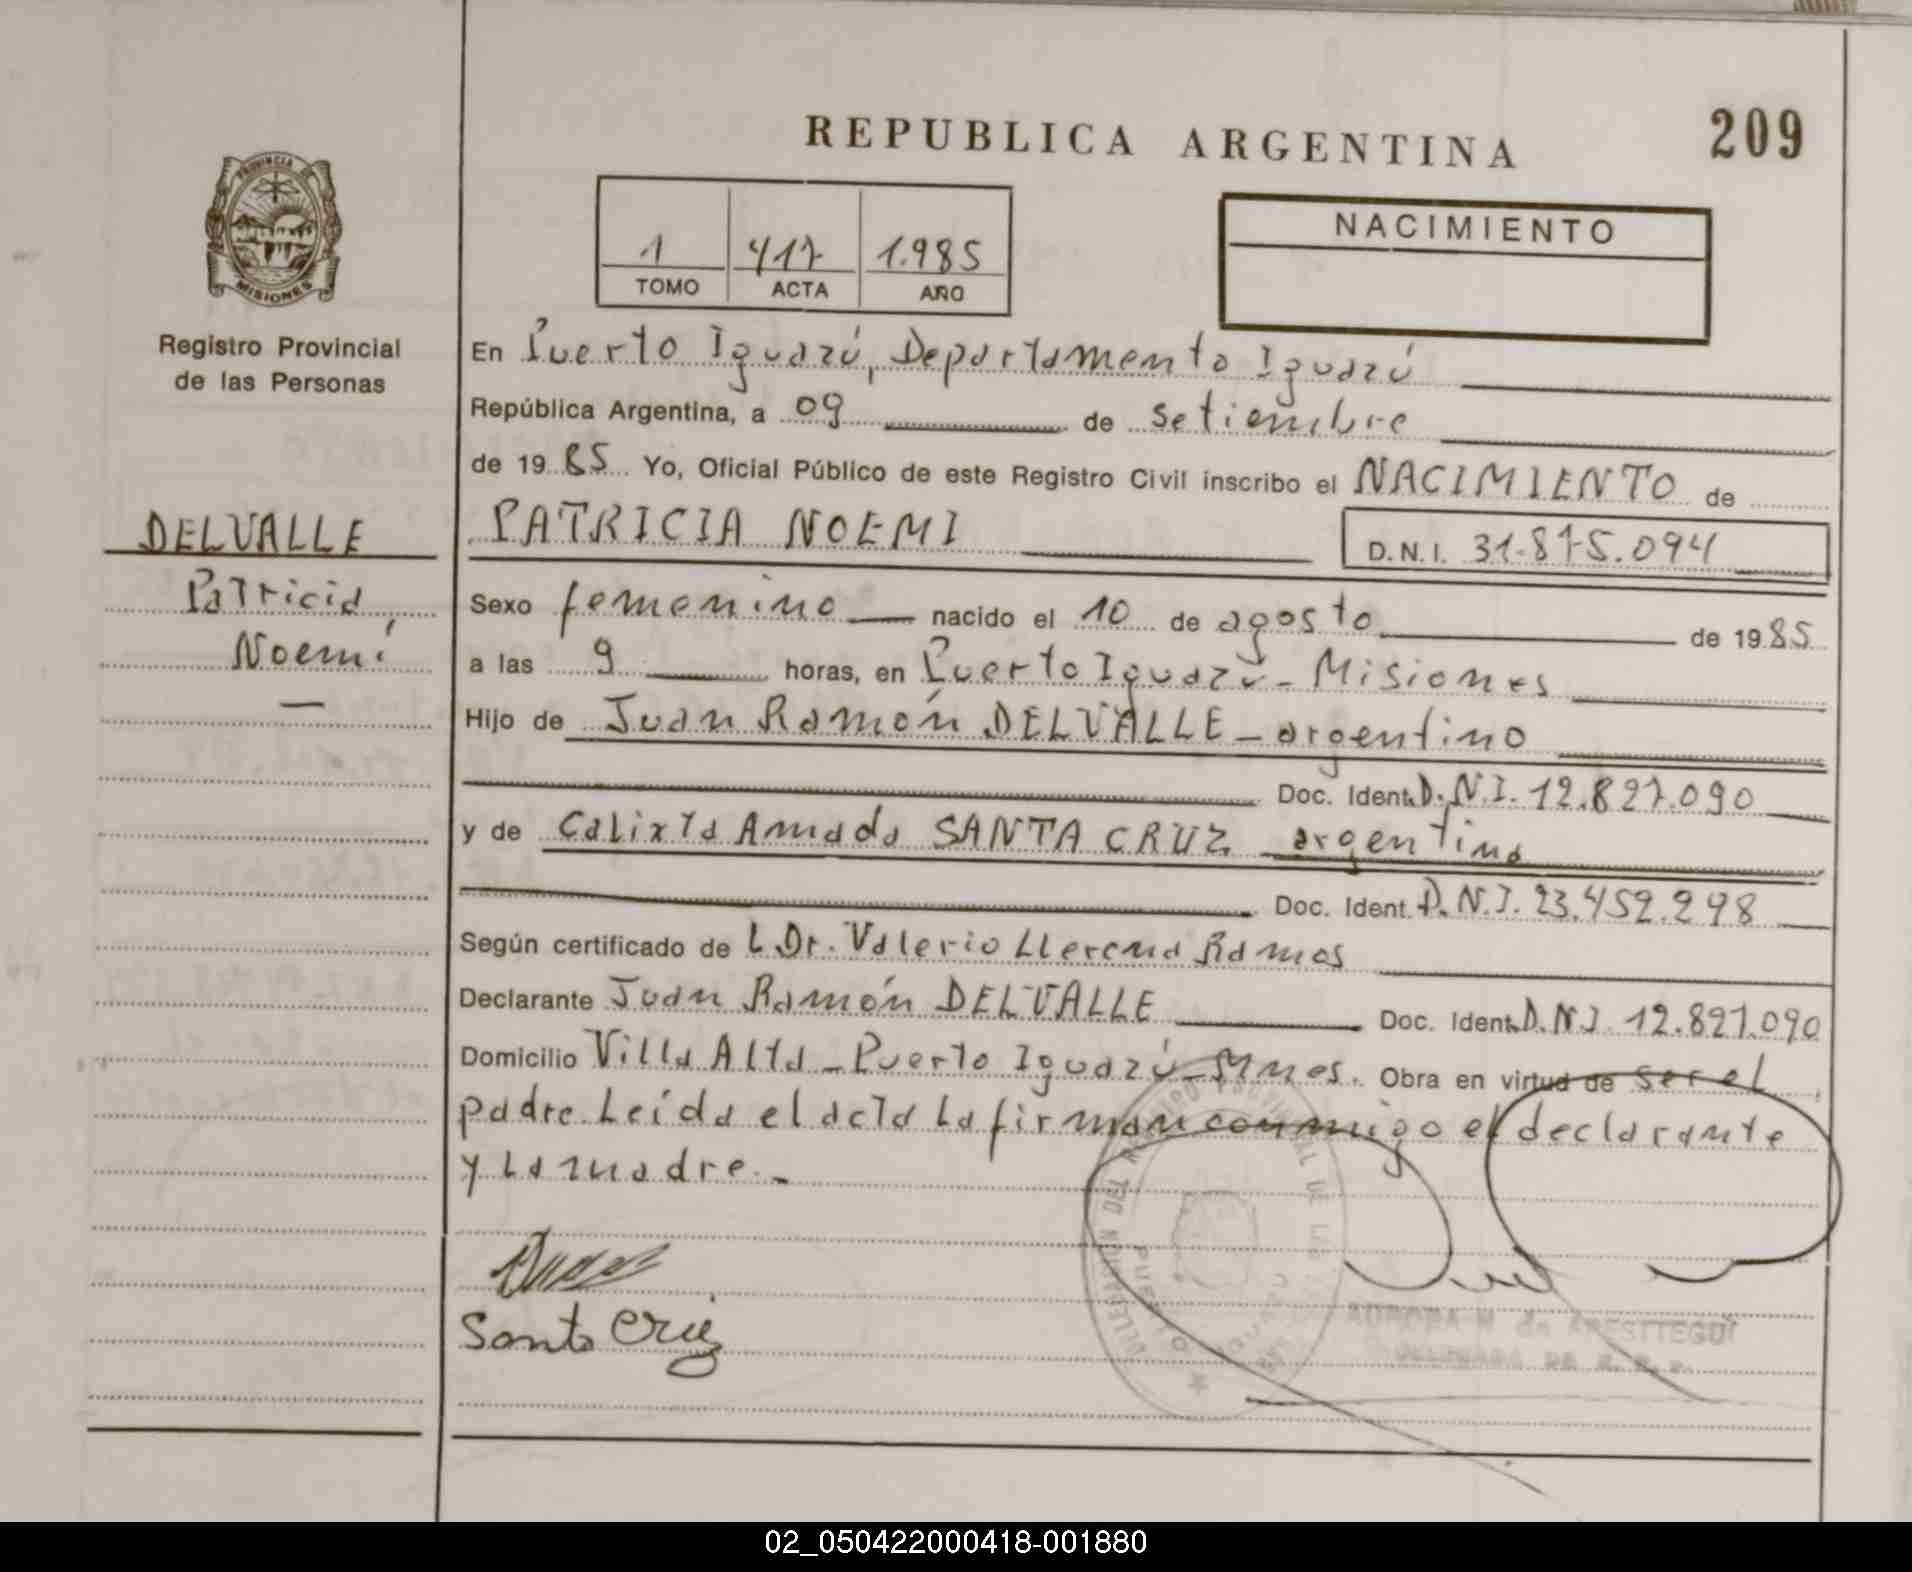 REPUBLICA ARGENTINA
209
PROVINCIA DE
MISIONES
Registro Provincial
de las Personas
1 417 1.985
TOMO ACTA AÑO
NACIMIENTO
En Puerto Iguazú, Departamento Iguazú
República Argentina, a 09 de Setiembre
de 19 85 Yo, Oficial Público de este Registro Civil inscribo el NACIMIENTO de
DELVALLE
PATRICIA NOEMI
D.N.I. 31.875.094
Patricia
Noemí
Sexo femenino nacido el 10 de agosto de 19 85
a las 9 horas, en Puerto Iguazú - Misiones
Hijo de Juan Ramón DELVALLE - argentino
Doc. Ident. D.N.I. 12.827.090
y de Calixta Amada SANTA CRUZ argentina
Doc. Ident. D.N.I. 23.452.298
Según certificado de L Dr. Valerio Llerena Ramos
Declarante Juan Ramón DELVALLE Doc. Ident. D.N.I. 12.827.090
Domicilio Villa Alta - Puerto Iguazú - Mnes. Obra en virtud de ser el
padre. Leída el acta la firman conmigo el declarante
y la madre.-
Santa Cruz
AURORA M. de ARESTEGUI
DELEGADA DE R. P. P.
02_050422000418-001880